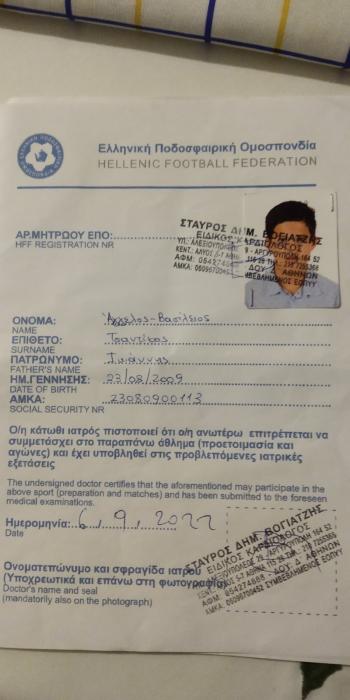 Ελληνική Ποδοσφαιρική Ομοσπονδία
HELLENIC FOOTBALL FEDERATION
ΣΤΑΥΡΟΣ ΔΗΜ. ΒΟΓΙΑΤΖΗΣ
ΕΙΔΙΚΟΣ ΚΑΡΔΙΟΛΟΓΟΣ
ΑΡ.ΜΗΤΡΩΟΥ ΕΠΟ:
HFF REGISTRATION NR
ΟΝΟΜΑ: Άγγελος-Βασίλειος
NAME
ΕΠΙΘΕΤΟ:
SURNAME
ΠΑΤΡΩΝΥΜΟ: Ιωάννης
FATHER'S NAME
ΗΜ.ΓΕΝΝΗΣΗΣ: 23/08/2009
DATE OF BIRTH
ΑΜΚΑ: 23080900113
SOCIAL SECURITY NR
Ο/η κάτωθι ιατρός πιστοποιεί ότι ο/η ανωτέρω επιτρέπεται να
συμμετάσχει στο παραπάνω άθλημα (προετοιμασία και
αγώνες) και έχει υποβληθεί στις προβλεπόμενες ιατρικές
εξετάσεις
The undersigned doctor certifies that the aforementioned may participate in the
above sport (preparation and matches) and has been submitted to the foreseen
medical examinations.
Ημερομηνία: 6/9/2022
Date
ΣΤΑΥΡΟΣ ΔΗΜ. ΒΟΓΙΑΤΖΗΣ
ΕΙΔΙΚΟΣ ΚΑΡΔΙΟΛΟΓΟΣ
Ονοματεπώνυμο και σφραγίδα ιατρού
(Υποχρεωτικά και επάνω στη φωτογραφία)
Doctor's name and seal
(mandatorily also on the photograph)